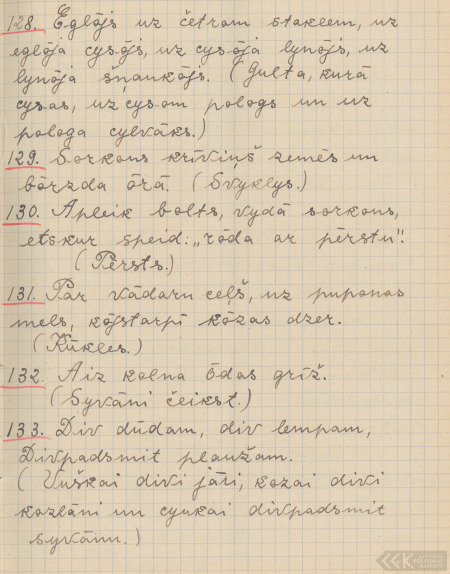 128. Eglõjs uz četram staklem, uz
eglõja cysõjs, uz cysõja lynõjs, uz
lynõja šņaukõjs. (Gulta, kurā
cysas, uz cysom pologs un uz
pologa cylvāks.)
129. Sorkons krīviņš zemēs un
bõrzda õrā. (Svyklys.)
130. Apleik bolts, vydā sorkons,
etskur speid: „rõda ar pērstu“.
(Pērsts.)
131. Par vādaru ceļš, uz puponas
mels, kõjstarpī kõzas dzer.
(Kūkles.)
132. Aiz kolna õdas grīž.
(Syvāni čeikst.)
133. Div dūdam, div lempam,
Divpadsmit plaužam.
(Vuškai divi jāri, kazai divi
kazlāni un cyukai divpadsmit
syvānu.)